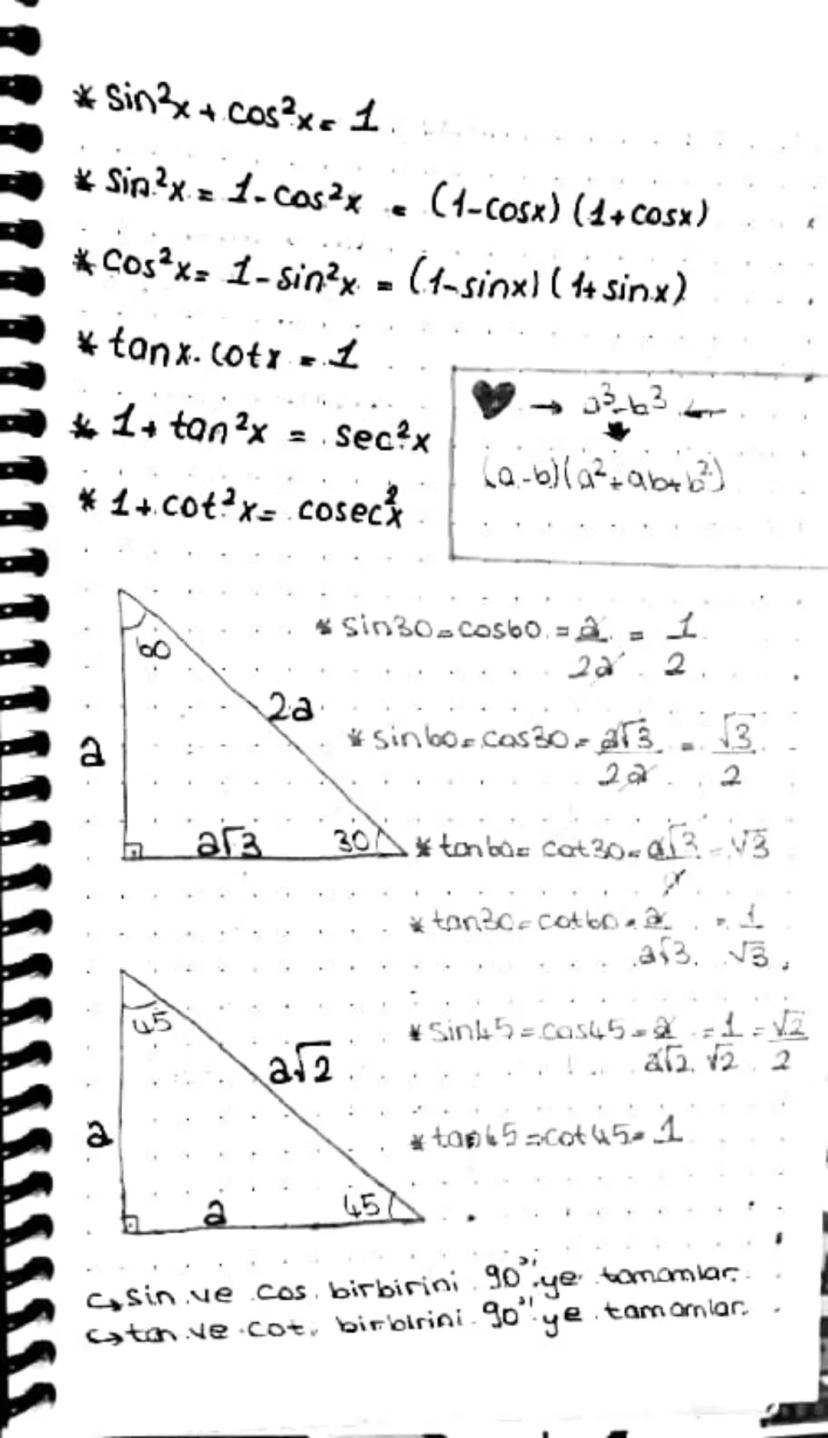 * sin²x + cos²x = 1
* sin²x = 1 - cos²x = (1-cosx) (1+cosx)
* cos²x = 1 - sin²x = (1-sinx) (1+sinx)
* tanx . cotx = 1
♥ → a³-b³ ←
(a-b)(a²+ab+b²)
* 1 + tan²x = sec²x
* 1 + cot²x = cosec²x
60
2a
a
a√3
30
* sin30 = cos60 = a/2a = 1/2
* sin60 = cos30 = a√3/2a = √3/2
* tan60 = cot30 = a√3/a = √3
* tan30 = cot60 = a/a√3 = 1/√3
45
a√2
a
a
45
* sin45 = cos45 = a/a√2 = 1/√2 = √2/2
* tan45 = cot45 = 1
↪ sin ve cos birbirini 90°'ye tamamlar.
↪ tan ve cot birbirini 90°'ye tamamlar.